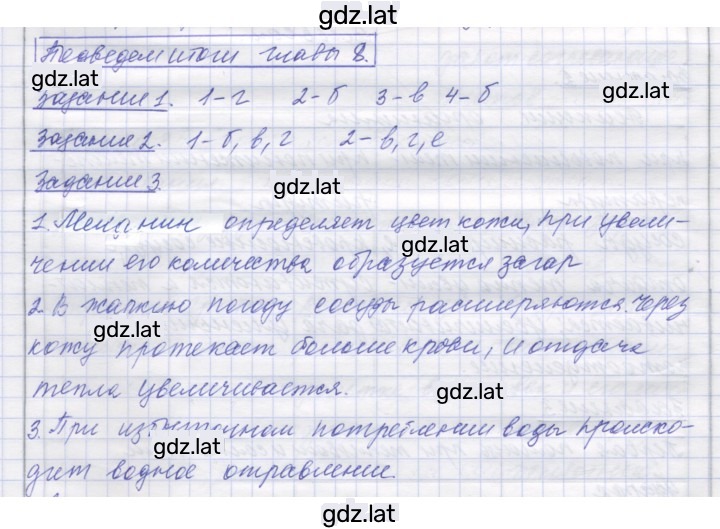 gdz.lat
Подведем итоги главы 8.
gdz.lat
Задание 1. 1-г 2-б 3-в 4-б
gdz.lat
Задание 2. 1-б, в, г 2-в, г, е
Задание 3.
gdz.lat
1. Меланин определяет цвет кожи, при увели-
gdz.lat
чении его количества образуется загар
2. В жаркую погоду сосуды расширяются. Через
gdz.lat
кожу протекает больше крови, и отдача
тепла увеличивается.
gdz.lat
3. При избыточном потреблении воды происхо-
gdz.lat
дит водное отравление.
gdz.lat